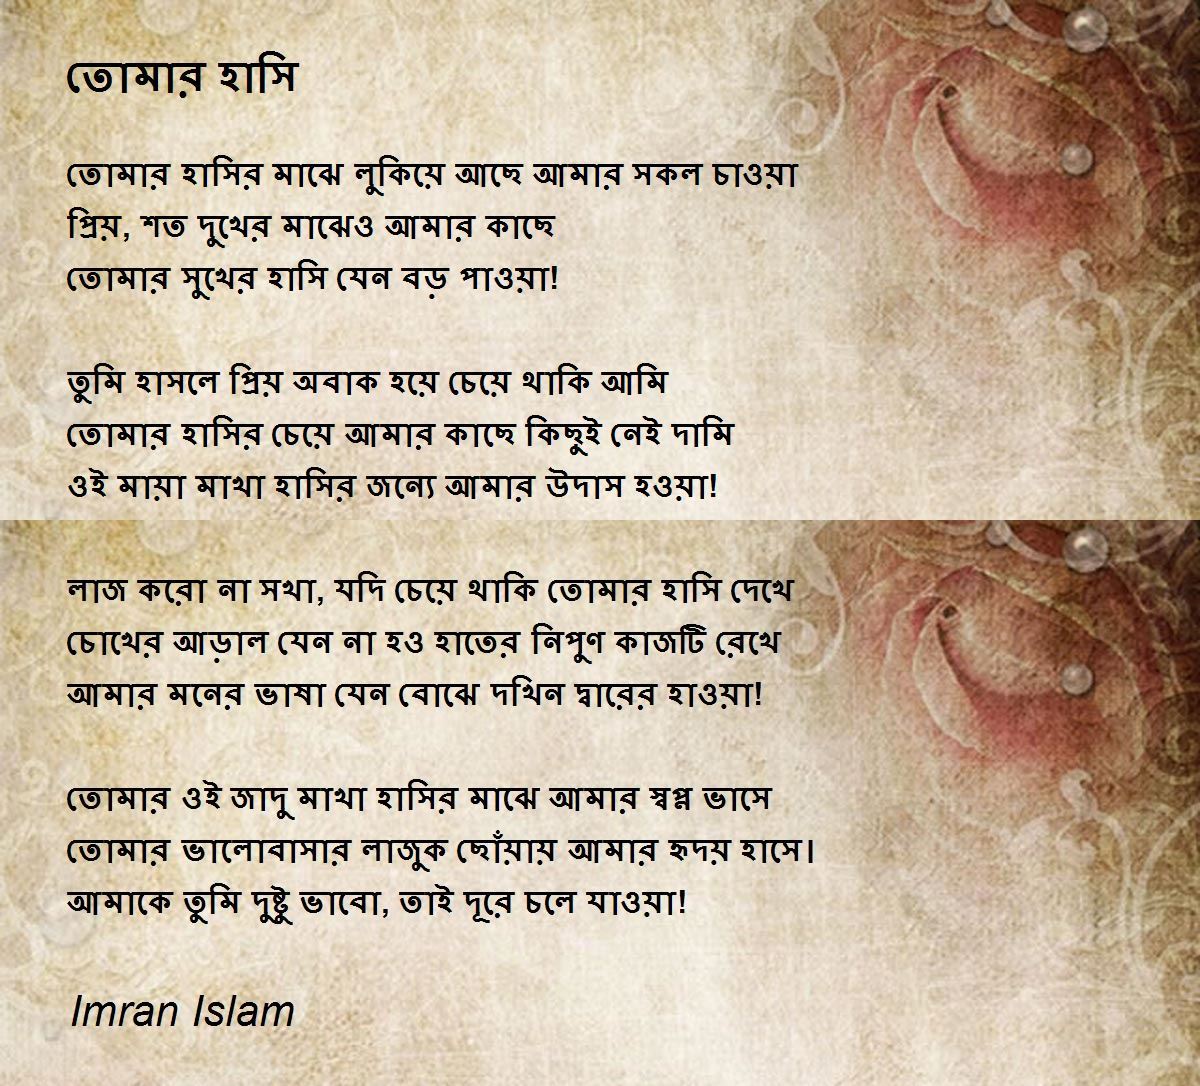 তোমার হাসি
তোমার হাসির মাঝে লুকিয়ে আছে আমার সকল চাওয়া
প্রিয়, শত দুখের মাঝেও আমার কাছে
তোমার সুখের হাসি যেন বড় পাওয়া!
তুমি হাসলে প্রিয় অবাক হয়ে চেয়ে থাকি আমি
তোমার হাসির চেয়ে আমার কাছে কিছুই নেই দামি
ওই মায়া মাখা হাসির জন্যে আমার উদাস হওয়া!
লাজ করো না সখা, যদি চেয়ে থাকি তোমার হাসি দেখে
চোখের আড়াল যেন না হও হাতের নিপুণ কাজটি রেখে
আমার মনের ভাষা যেন বোঝে দখিন দ্বারের হাওয়া!
তোমার ওই জাদু মাখা হাসির মাঝে আমার স্বপ্ন ভাসে
তোমার ভালোবাসার লাজুক ছোঁয়ায় আমার হৃদয় হাসে।
আমাকে তুমি দুষ্টু ভাবো, তাই দূরে চলে যাওয়া!
Imran Islam